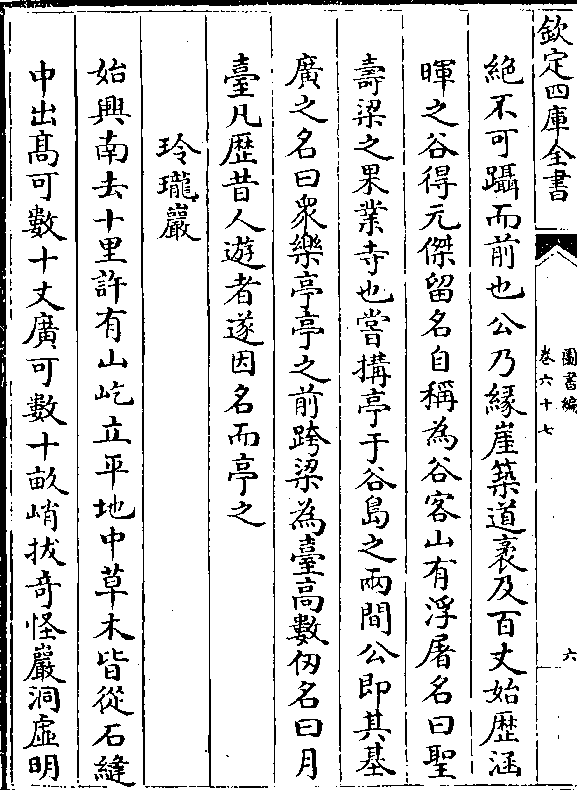 欽定四庫全書
圖書編
卷六十七
六
絶不可躡而前也公乃緣崖築道袤及百丈始歴涵
暉之谷得元傑留名自稱為谷客山有浮屠名曰聖
壽梁之果業寺也嘗搆亭于谷島之兩間公即其基
廣之名曰衆樂亭亭之前跨梁為臺高數仞名曰月
臺凡歴昔人遊者遂因名而亭之
玲瓏巖
始興南去十里許有山屹立平地中草木皆從石縫
中出髙可數十丈廣可數十畝峭拔奇怪巖洞虚明